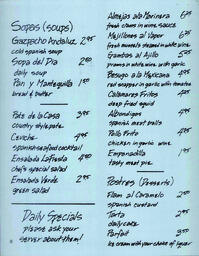 Sopas (soups)
Gazpacho Andaluz 2.95
cold spanish soup
Sopa del Dia 2.50
daily soup
Pan y Mantequilla 1.50
bread & butter
Pate de la Casa 3.95
country style pate
Ceviche 4.95
spanish seafood cocktail
Ensalada La Fiesta 4.50
chef's special salad
Ensalada Verde 2.95
green salad
Daily Specials
please ask your
server about them!
Almejas a la Marinera 6.95
fresh clams in wine sauce
Mejillones al Vapor 6.95
fresh mussels steamed in white wine
Gambas al Ajillo 5.95
prawns in white wine with garlic
Besugo a la Mexicana 4.95
red snapper in garlic with tomatoes
Calamares Fritos 4.95
deep fried squid
Albondigas 4.95
spanish meat balls
Pollo Frito 4.95
chicken in garlic wine
Empanadilla 1.95
tasty meat pie
Postres (Desserts)
Flan al Caramelo 2.50
spanish custard
Tarta 2.95
daily cake
Parfait 3.50
ice cream with your choice of liquor